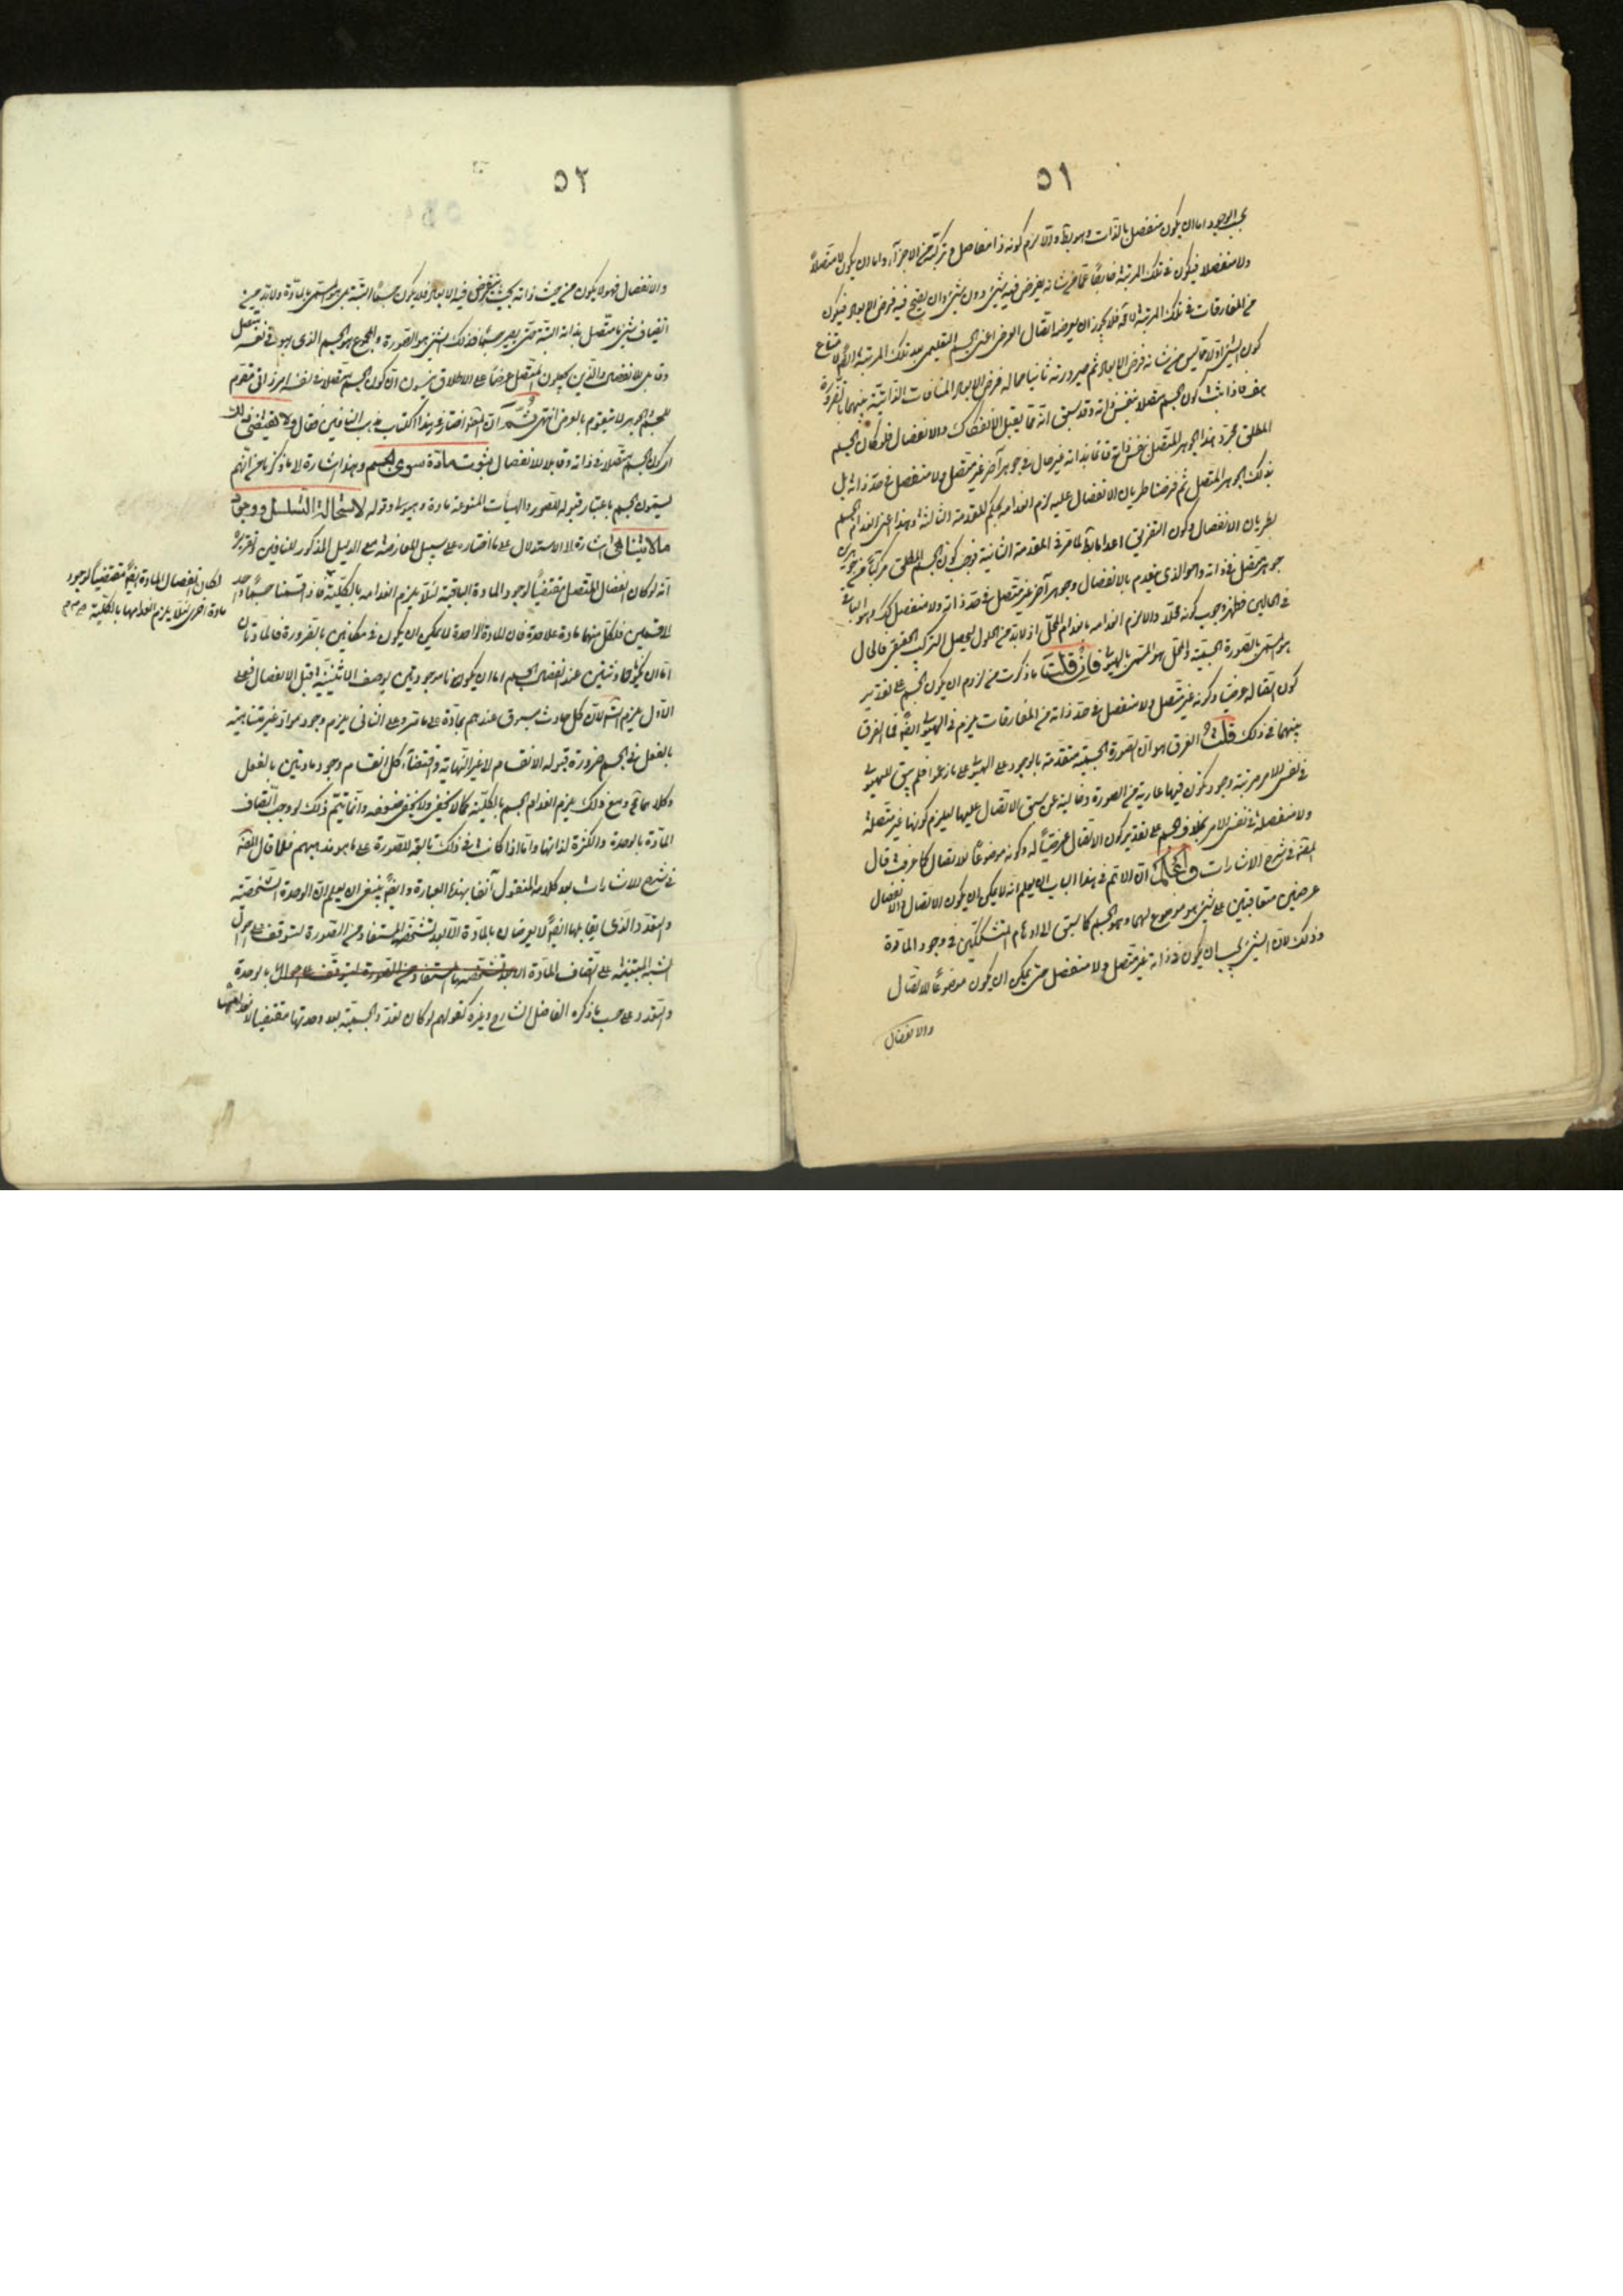 ٥١
بحسب الوجود اما ان يكون منفصل بالذات وهو بط والا لزم كونه ذا مفاصل وتركبه من الاجزاء واما ان يكون لا متصلاً
ولا منفصلا فيكون في تلك المرتبة عما من شانه يفرض فيه شئ دون شئ وان يصح فيه فرض الابعاد فيكون
من المفارقات في تلك المرتبة فلا يجوز ان يعرضه اتصال العرض اعنى الجسم التعليمى بعد تلك المرتبة لامتناع
كون الشئ اولا مما ليس من شانه فرض الابعاد ثم صيرورته ثانيا محالا فرض الابعاد المنافات الذاتية بينهما بالضرورة
هف فاذا ثبت كون الجسم متصلا بنفس ذاته وقد سبق انه مما يقبل الانفكاك والانفصال فلو كان الجسم
المطلق مجرد هذا الجوهر المتصل بنفس ذاته قائما بذاته غير حال في جوهر آخر غير متصل ولا منفصل في حد ذاته بل
بذلك الجوهر المتصل ثم فرضنا طريان الانفصال عليه لزم انعدامه بحكم المقدمة الثالثة وهذا اعنى انعدام الجسم
بطريان الانفصال وكون التفريق اعداما بط لما مر في المقدمة الثانية فوجب كون الجسم المطلق مركبا من جوهرين
جوهر متصل في ذاته وهو الذى ينعدم بالانفصال وجوهر آخر غير متصل في حد ذاته ولا منفصل كك وهو الباقي
في الحالين فظهر وجوب كونه محلا والا لزم انعدامه بانعدام المحل اذ لابد من الحلول ليحصل التركب الحقيقي فالحال
هو المسمى بالصورة الجسمية والمحل هو المسمى بالهيولى فان قلت ما ذكرت من لزوم ان يكون الجسم على تقدير
كون اتصاله عرضا وكونه غير متصل ولا منفصل في حد ذاته من المفارقات يلزم في الهيولى ايضا فما الفرق
بينهما في ذلك قلت الفرق هو ان الصورة الجسمية متقدمة بالوجود على الهيولى على ما زعموا فلم يبق للهيولى
في نفس الامر مرتبة وجود تكون فيها عارية من الصورة وخالية عن سبق الاتصال عليها ليلزم كونها غير متصلة
ولا منفصلة في نفس الامر بخلاف الجسم على تقدير كون الاتصال عرضياً له وكونه موضوعاً للاتصال كما عرفت قال
المص في شرح الاشارات واعلم ان الاتم في هذا الباب ان يعلم انه لا يمكن ان يكون الاتصال والانفصال
عرضين متعاقبين على شئ هو موضوع لهما وهو الجسم كما سبق الى اوهام المتشككين في وجود المادة
وذلك لان الشئ يجب ان يكون في ذاته غير متصل ولا منفصل حتى يمكن ان يكون موضوعاً للاتصال
والانفصال
٥٢
والانفصال فهو لا يكون من حيث ذاته بحيث يفرض فيه الابعاد فلا يكون جسماً البتة بل هو المسمى بالمادة ولابد من
انضياف شئ ما متصل بذاته اليه حتى يصير جسماً فذلك الشئ هو الصورة والمجموع هو الجسم الذى هو في نفسه متصل
وقابل للانفصال والذين يجعلون المتصل عرضاً على الاطلاق ينسون ان كون الجسم متصلا في نفسه امر ذاتى مقوم
للجسم والجوهر لا يتقوم بالعرض انتهى ثم ان المص اختار في هذا الكتاب مذهب النافين فقال ولا يقتضى ذلك
اى كون الجسم متصلا في ذاته وقابلا للانفصال ثبوت مادة سوى الجسم وهذا اشارة الى ما ذكرنا من انهم
يسمون الجسم باعتبار قبوله للصور والهيأت المنوعة مادة وهيولى وقوله لاستحالة التسلسل ووجود
ما لا يتناهى اشارة الى الاستدلال على ما اختاره على سبيل المعارضة مع الدليل المذكور للنافين تقريره
انه لو كان انفصال المتصل مقتضياً لوجود المادة الباقية لئلا يلزم انعدامه بالكلية فاذا قسمنا جسماً واحداً
الى قسمين فلكل منهما مادة على حدة فان المادة الواحدة لا يمكن ان يكون في مكانين بالضرورة فالمادتان
اما ان تكونا حادثتين عند انفصال الجسم او ان تكونا موجودتين بوصف الاثنينية قبل الانفصال فعلى
الاول يلزم التسلسل لان كل حادث مسبوق عندهم بمادة على ما مر وعلى الثانى يلزم وجود مواد غير متناهية
بالفعل في الجسم ضرورة قبوله الانقسام لا غير النهاية واقتضاء كل انقسام وجود مادتين بالفعل
وكلاهما مح ومع ذلك يلزم انعدام الجسم بالكلية كما لا يخفى ولا يخفى ضعفه وانما يتم ذلك لو وجب اتصاف
المادة بالوحدة والكثرة لذاتها واما اذا كانت في ذلك تابعة للصورة على ما هو مذهبهم فلا قال المص
في شرح الاشارات بعد كلامه المنقول آنفا بهذه العبارة وايضاً ينبغى ان يعلم ان الوحدة الشخصية
والتعدد الذى يقابلها ايضاً لا يعرضان بالمادة الا بعد تشخصها المستفاد من الصورة لتتوقف على احوال
الشبه المبتنية على اتصاف المادة بالوحدة
والتعدد على حسب ما ذكره الفاضل الشارح وغيره كقولهم لو كان تعدد الجسمية بعد وحدتها مقتضيا لانعدامها
لكان انفصال المادة ايضاً مقتضياً لوجود
مادة اخرى لئلا يلزم انعدامها بالكلية